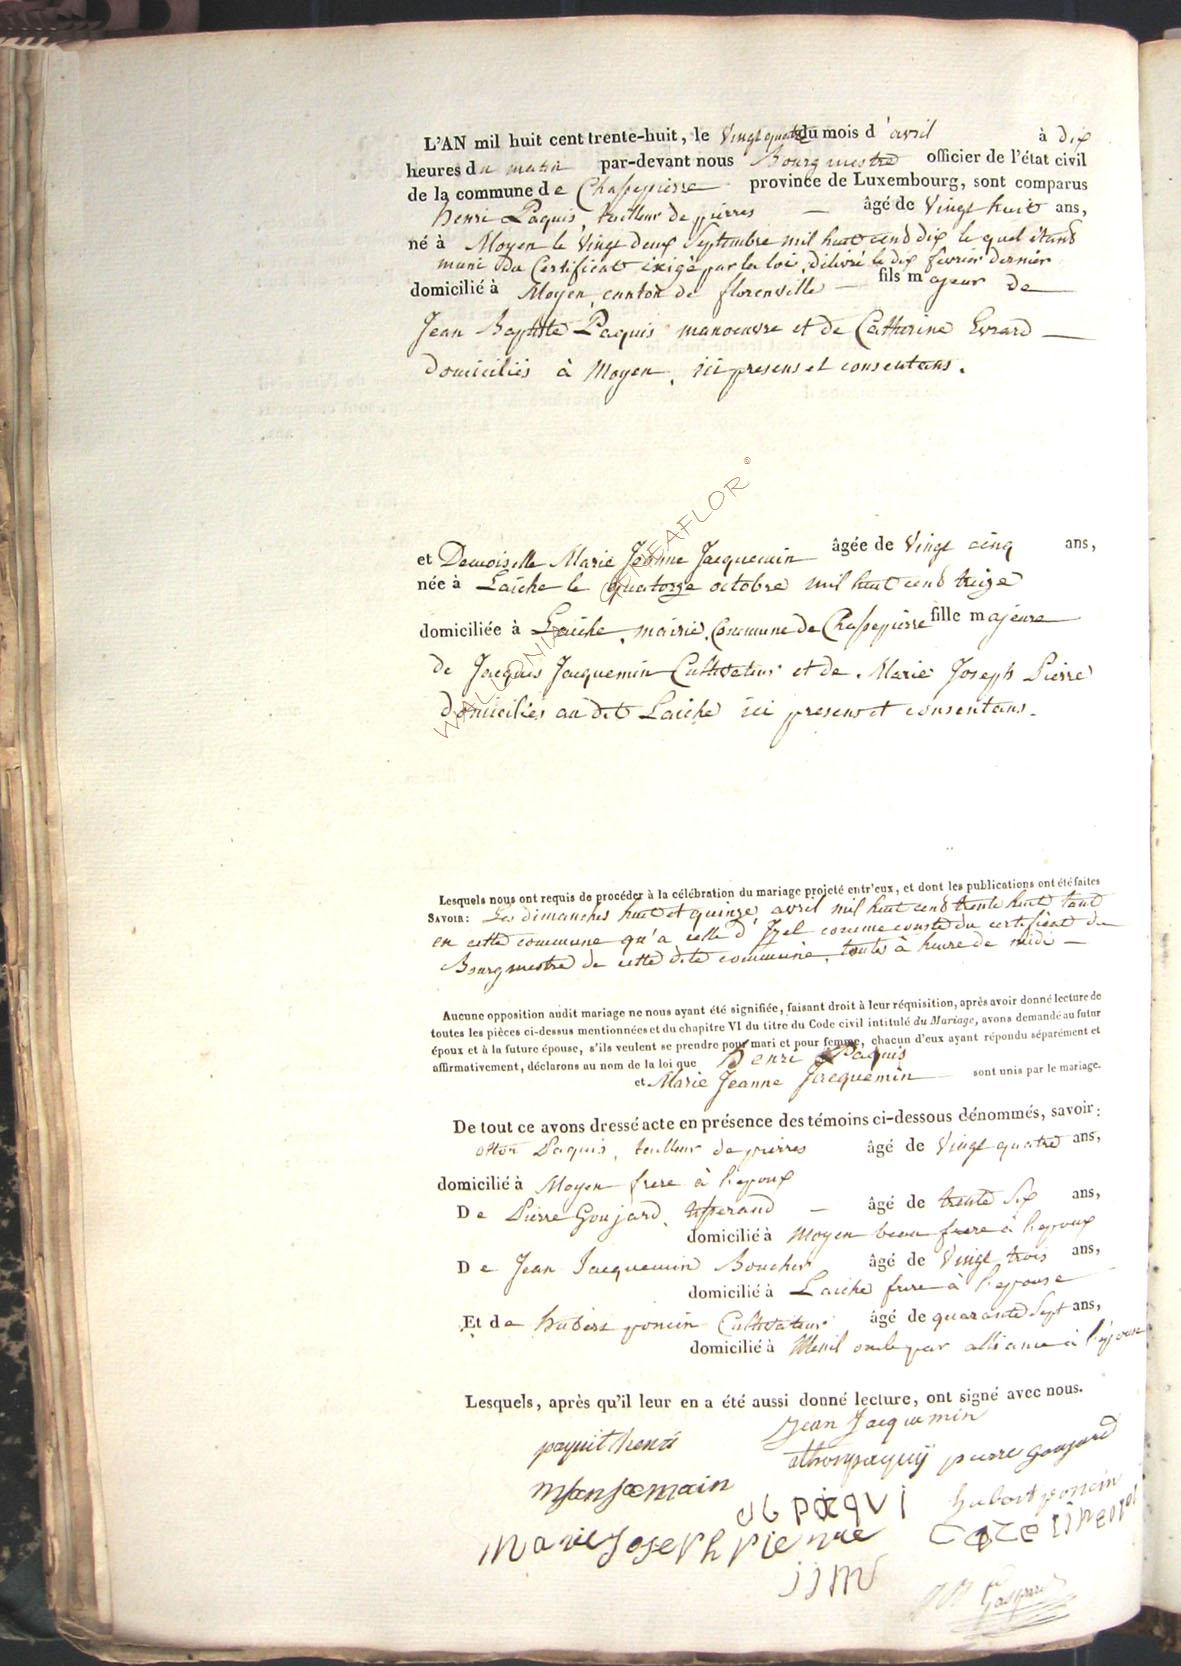 L'AN mil huit cent trente-huit, le Vingt quatre du mois d'avril à dix
heures du matin par-devant nous Bourgmestre officier de l'état civil
de la commune de Chassepierre province de Luxembourg, sont comparus
henri Paquis, tailleur de pierres — âgé de Vingt huit ans,
né à Moyen le Vingt deux Septembre mil huit cend dix le quel étant
muni du Certificat exigé par la loi, délivré le dix février dernier
domicilié à Moyen canton de florenville — fils majeur de
Jean Baptiste Paquis manoeuvre et de Catherine Evrard —
domiciliés à Moyen, ici presens et consentans.
©
WALLONIA FLOR
et Demoiselle Marie Jeanne Jacquemin âgée de Vingt cinq ans,
née à Laiche le quatorze octobre mil huit cend treize
domiciliée à Laiche, mairie, Commune de Chassepierre fille majeure
de Jacques Jacquemin Cultivateur et de Marie Joseph Pierre
domiciliés au dit Laiche ici presens et consentans.
Lesquels nous ont requis de procéder à la célébration du mariage projeté entr'eux, et dont les publications ont été faites
SAVOIR: Les dimanches huit et quinze avril mil huit cend trente huit tant
en cette commune qu'a celle d'Izel comme conste du certificat du
Bourgmestre de cette dite commune, toutes à heure de midi —
Aucune opposition audit mariage ne nous ayant été signifiée, faisant droit à leur réquisition, après avoir donné lecture de
toutes les pièces ci-dessus mentionnées et du chapitre VI du titre du Code civil intitulé du Mariage, avons demandé au futur
époux et à la future épouse, s'ils veulent se prendre pour mari et pour femme, chacun d'eux ayant répondu séparément et
affirmativement, déclarons au nom de la loi que Henri Paquis
et Marie Jeanne Jacquemin sont unis par le mariage.
De tout ce avons dressé acte en présence des témoins ci-dessous dénommés, savoir:
otton Paquis, tailleur de pierres âgé de Vingt quatre ans,
domicilié à Moyen frere à l'epoux
De Pierre Goujard, — âgé de trente Six ans,
domicilié à Moyen beau frere à l'epoux
De Jean Jacquemin Boucher âgé de Vingt trois ans,
domicilié à Laiche frere à l'epouse
Et de hubert poncin Cultivateur âgé de quarante Sept ans,
domicilié à Menil oncle par alliance à l'epouse
Lesquels, après qu'il leur en a été aussi donné lecture, ont signé avec nous.
Jean Jacquemin
paquit henri
pierre goujard
hubert poncin
paqvi
marie Joseph pierre
jjm
Gaspard